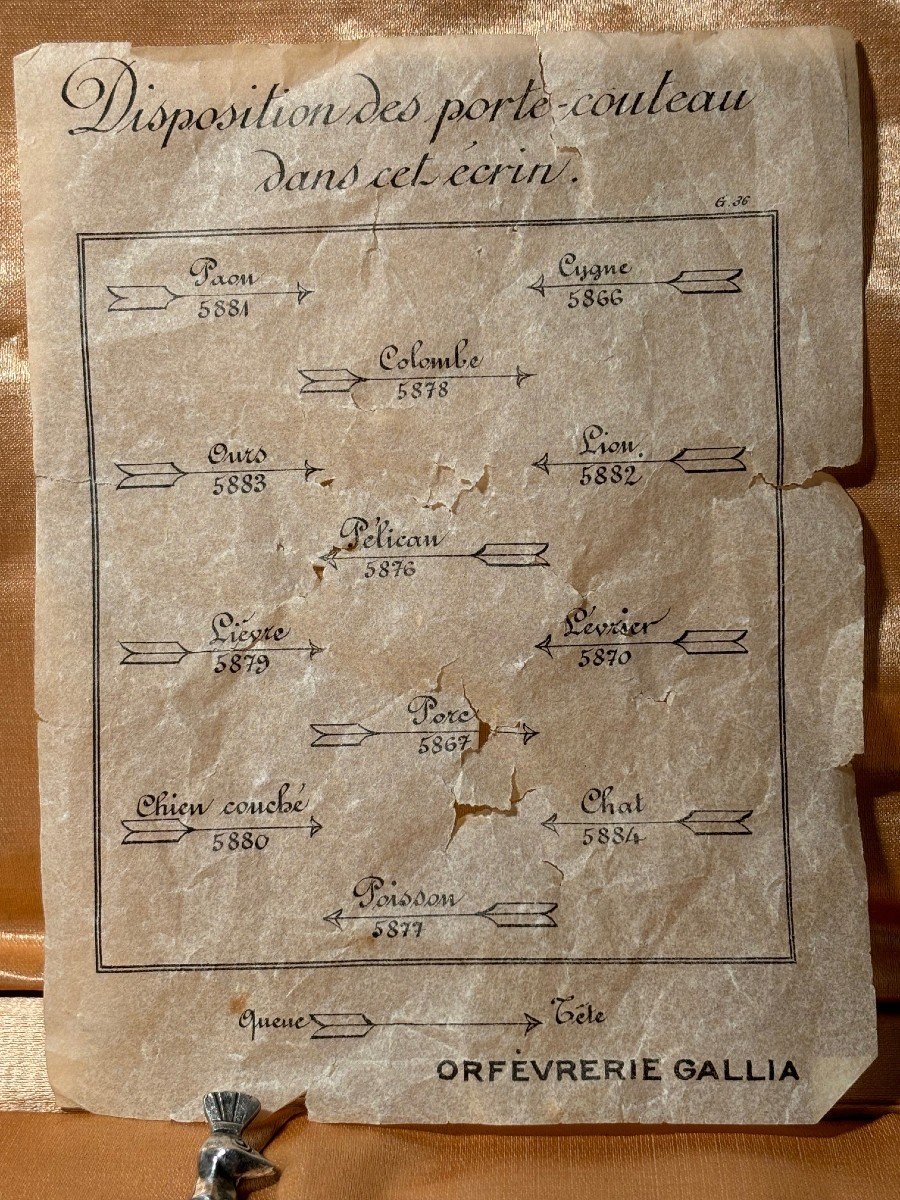 Disposition des porte-couteau
dans cet écrin.
G. 36
Paon
5881
Cygne
5866
Colombe
5878
Ours
5883
Lion.
5882
Pélican
5876
Lièvre
5879
Lévrier
5870
Porc
5867
Chien couché
5880
Chat
5884
Poisson
5877
Queue
Tête
ORFÈVRERIE GALLIA